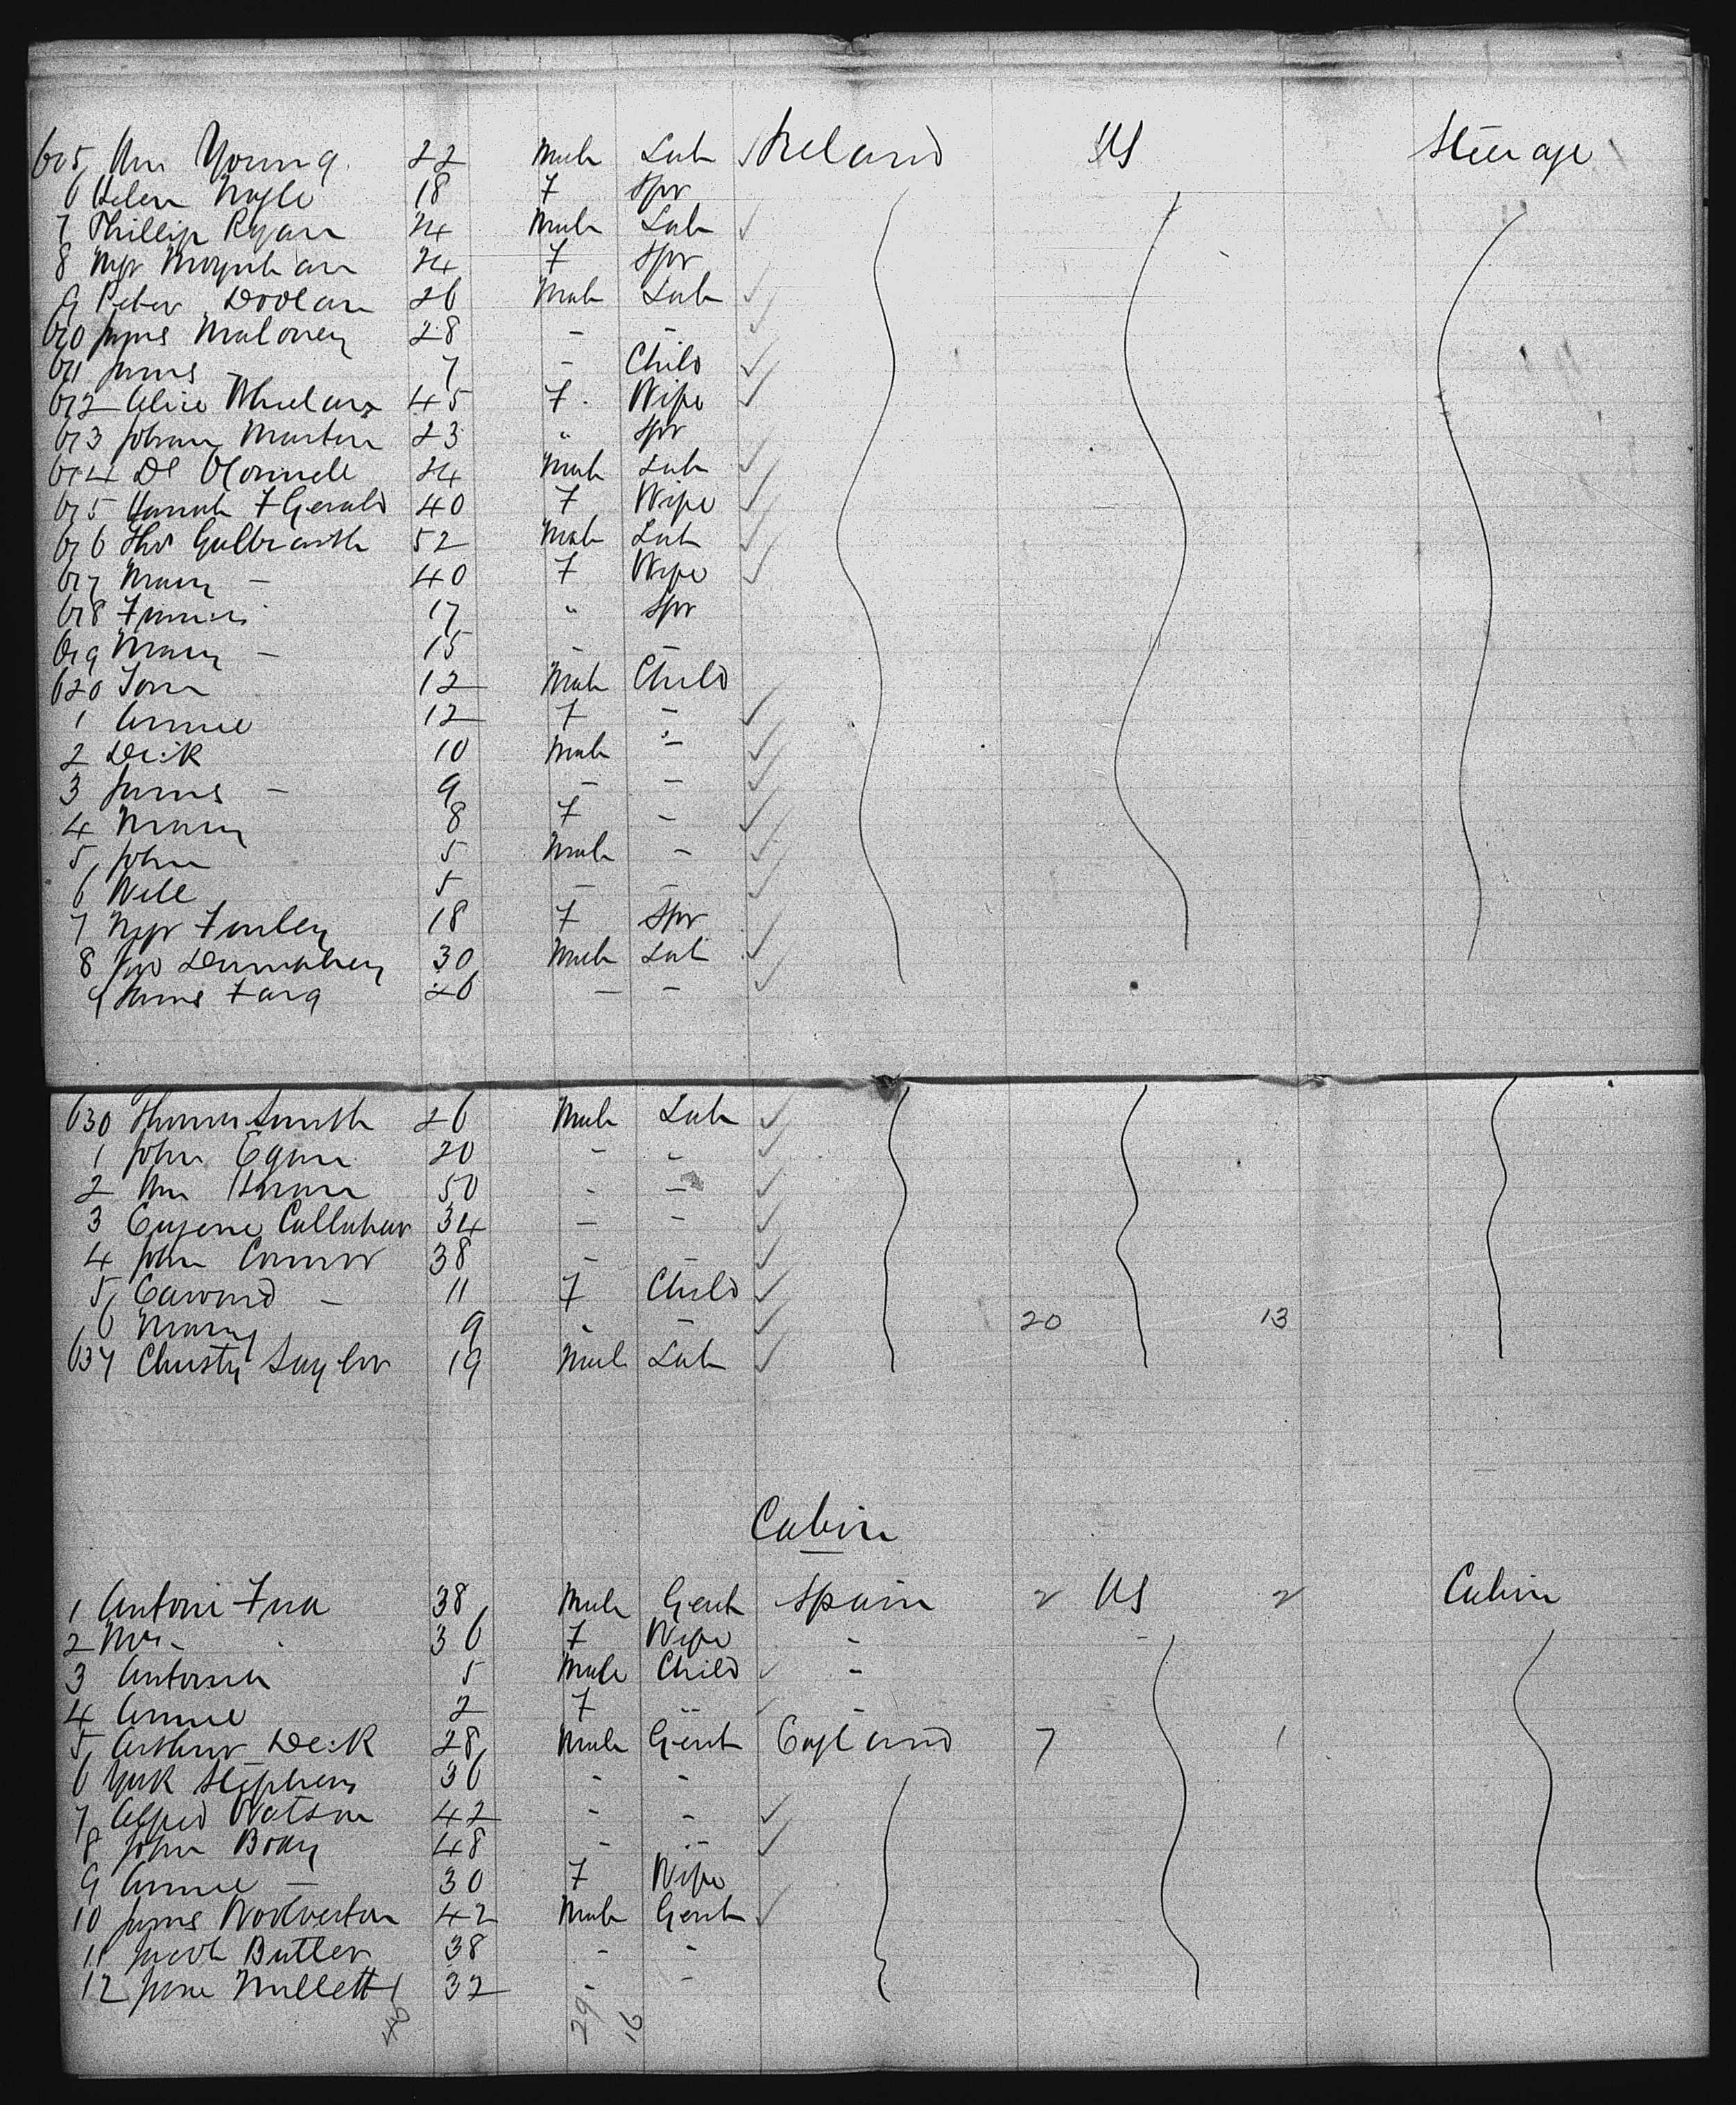 605 Wm Young 22 Male Lab Ireland US Steerage
6 Helen Nagle 18 F Spr
7 Phillip Ryan 24 Male Lab
8 Mgr Moynihan 24 F Spr
9 Peter Doolan 26 Male Lab
610 James Maloney 28 - -
611 James - 7 - Child
612 Alice Whelan 45 F. Wife
613 Johan Martin 23 " Spr
614 Dl OConnell 24 Male Lab
615 Hannah FGerald 40 F Wife
616 Thos Galbraith 52 Male Lab
617 Mary - 40 F Wife
618 17 " Spr
619 Mary - 15 - -
620 Tom 12 Male Child
1 Annie 12 F -
2 Dick 10 Male -
3 James - 9 - -
4 Mary 8 F -
5 John 5 Male -
6 Will 5 - -
7 Mgr Finley 18 F Spr
8 Jno 30 Male Lab
9 James 26 - -
630 Thomas Smith 26 Male Lab
1 John Egan 20 - -
2 Wm 50 - -
3 Eugene Callahan 34 - -
4 John Connor 38 - -
5 Edward - 11 F Child
6 Mary 9 " - 20 13
637 Christy Taylor 19 Male Lab
Cabin
1 Antoni 38 Male Gent Spain 2 US 2 Cabin
2 Mrs - 36 F Wife -
3 Antonia 5 Male Child -
4 Annie 2 F - -
5 Arthur Dick 28 Male Gent England 7 1
6 York Stephens 36 - -
7 Alfred Watson 42 - -
8 John Body 48 - -
9 Annie - 30 F Wife
10 James Wolverton 42 Male Gent
11 Jacob Butler 38 - -
12 Jane Millett 32 - -
29 16